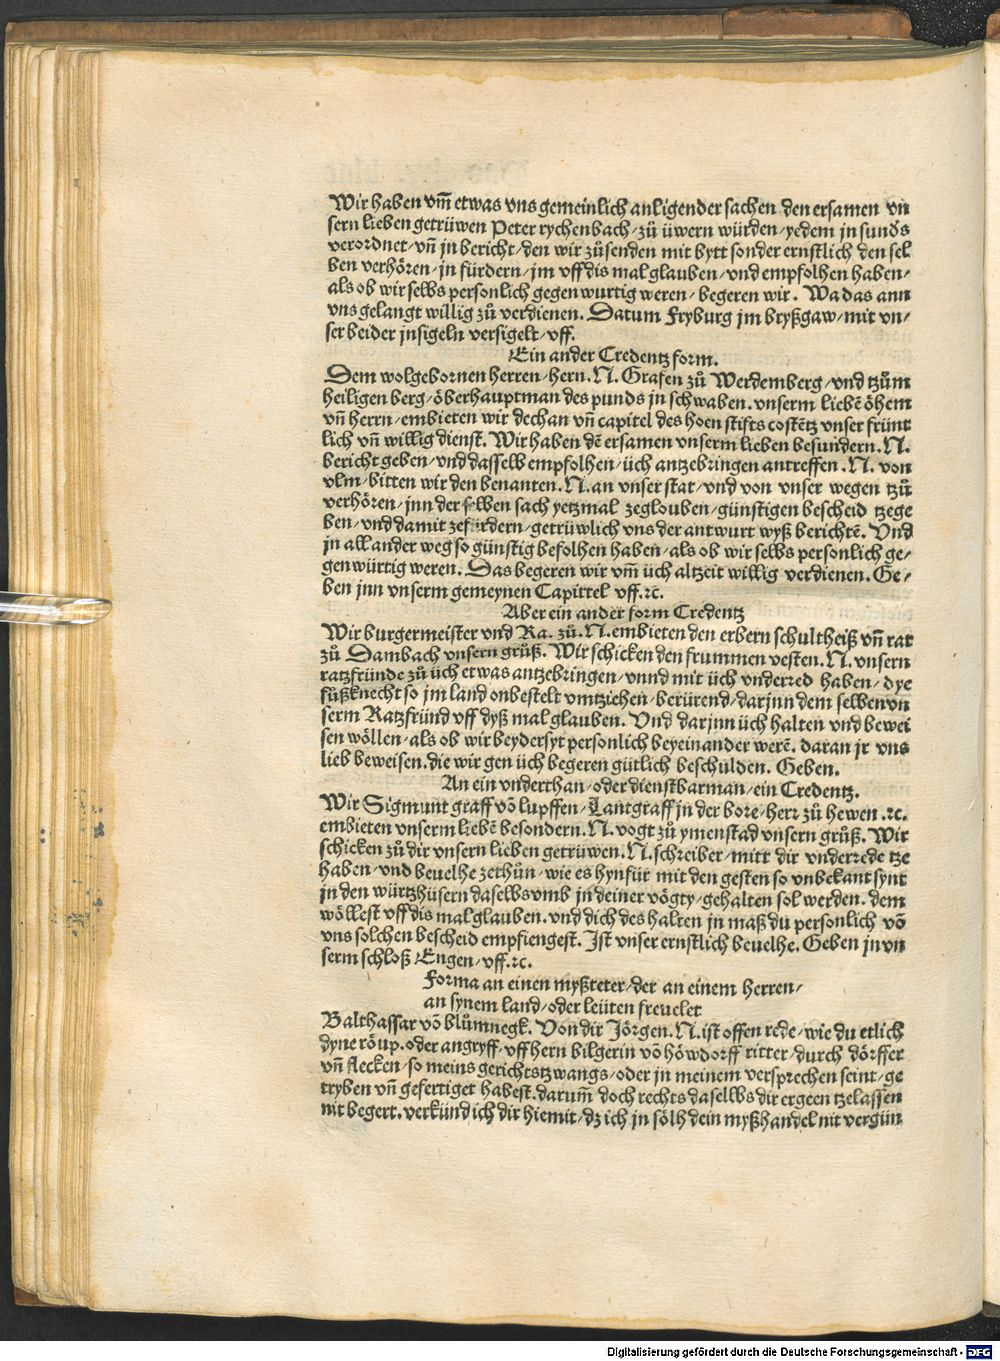 Wir haben vm̃ etwas vns gemeinlich anligender sachen den ersamen vn
sern lieben getrüwen Peter rychenbach/ zů üwern würden/ yedem jn sunders
verordnet/ vñ jn bericht/ den wir zůsenden mit bytt sonder ernstlich den sel
ben verhören/ jn fürdern/ jm vff dis mal glauben/ vnd empfolhen haben/
als ob wir selbs personlich gegenwurtig weren/ begeren wir. Wa das ann
vns gelangt willig zů verdienen. Datum Fryburg jm bryßgaw/ mit vn/
ser beider jnsigeln versigelt/ vff.
Ein ander Credentz form.
Dem wolgebornen herren/ hern. N. Grafen zů Werdemberg/ vnd tzům
heiligen berg/ öberhauptman des punds jn schwaben. vnserm liebē öhem
vñ herrn/ embieten wir dechan vñ capitel des hoen stifts costētz vnser frünt
lich vñ willig dienst. Wir haben dē ersamen vnserm lieben besundern. N.
bericht geben/ vnd dasselb empfolhen/ üch antzebringen antreffen. N. von
vlm/ bitten wir den benanten. N. an vnser stat/ vnd von vnser wegen tzů
verhören/ jnn der selben sach yetzmal zeglouben/ günstigen bescheid tzege
ben/ vnd damit zefürdern/ getrüwlich vns der antwurt wyß berichtē. Vnd
jn all ander weg so günstig befolhen haben/ als ob wir selbs personlich ge/
genwürtig weren. Das begeren wir vm̃ üch altzeit willig verdienen. Ge/
ben jnn vnserm gemeynen Capittel vff. ꝛc.
Aber ein ander form Credentz
Wir burgermeister vnd Ra. zů. N. embieten den erbern schultheiß vñ rat
zů Dambach vnsern grůß. Wir schicken den frummen vesten. N. vnsern
ratzfründe zů üch etwas antzebringen/ vnnd mit üch vnderred haben/ dye
fůßknecht so jm land onbestelt vmtziehen/ berürend/ darjnn dem selben vn
serm Ratzfründ vff dyß mal glauben. Vnd darjnn üch halten vnd bewei
sen wöllen/ als ob wir beydersyt personlich beyeinander werē. daran jr vns
lieb beweisen. die wir gen üch begeren gütlich beschulden. Geben.
An ein vnderthan/ oder dienstbarman/ ein Credentz.
Wir Sigmunt graff vō lupffen/ Lantgraff jn der bore/ herr zů hewen. ꝛc.
embieten vnserm liebē besondern. N. vogt zů ymenstad vnsern grůß. Wir
schicken zů dir vnsern lieben getrüwen. N. schreiber/ mitt dir vnderrede tze
haben/ vnd beuelhe zethůn/ wie es hynfür mit den gesten so vnbekant synt
jn den würtzhüsern daselbs vmb jn deiner vögty/ gehalten sol werden. dem
wöllest vff dis mal glauben. vnd dich des halten jn maß du personlich vō
vns solchen bescheid empfiengest. Ist vnser ernstlich beuelhe. Geben jn vn
serm schloß Engen/ vff. ꝛc.
Forma an einen myßteter/ der an einem herren/
an synem land/ oder leüten freuelet
Balthassar vō blůmnegk. Von dir Jörgen. N. ist offen rede/ wie du etlich
dyne röup. oder angryff/ vff hern bilgerin vō höwdorff ritter/ durch dörffer
vñ flecken/ so meins gerichtstzwangs/ oder jn meinem versprechen seint/ ge
tryben vñ gefertiget habest. darum̃ doch rechts daselbs dir ergeen tzelassen
nit begert. verkünd ich dir hiemit/ dz ich jn sölh dein myßhandel nit vergün
Digitalisierung gefördert durch die Deutsche Forschungsgemeinschaft - DFG